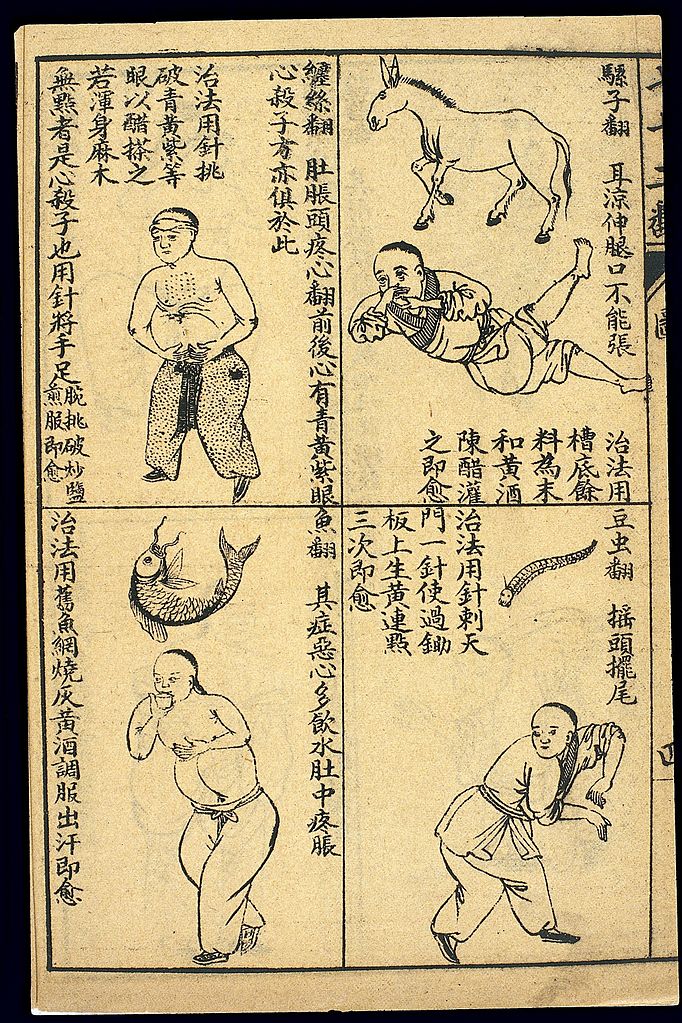 騾子翻　耳涼伸腿口不能張
治法用
槽底餘
料為末
和黃酒
陳醋灌
之即愈
豆虫翻　搖頭擺尾
治法用針刺天
門一針使過鋤
板上生黃連點
三次即愈
纏絲翻　肚脹頭疼心翻前後心有青黃紫眼
心殺子方亦俱於此
治法用針挑
破青黃紫等
眼以醋搽之
若渾身麻木
無點者是心殺子也用針將手足腕挑破炒鹽
煎服即愈
魚翻　其症惡心多飲水肚中疼脹
治法用舊魚網燒灰黃酒調服出汗即愈
四